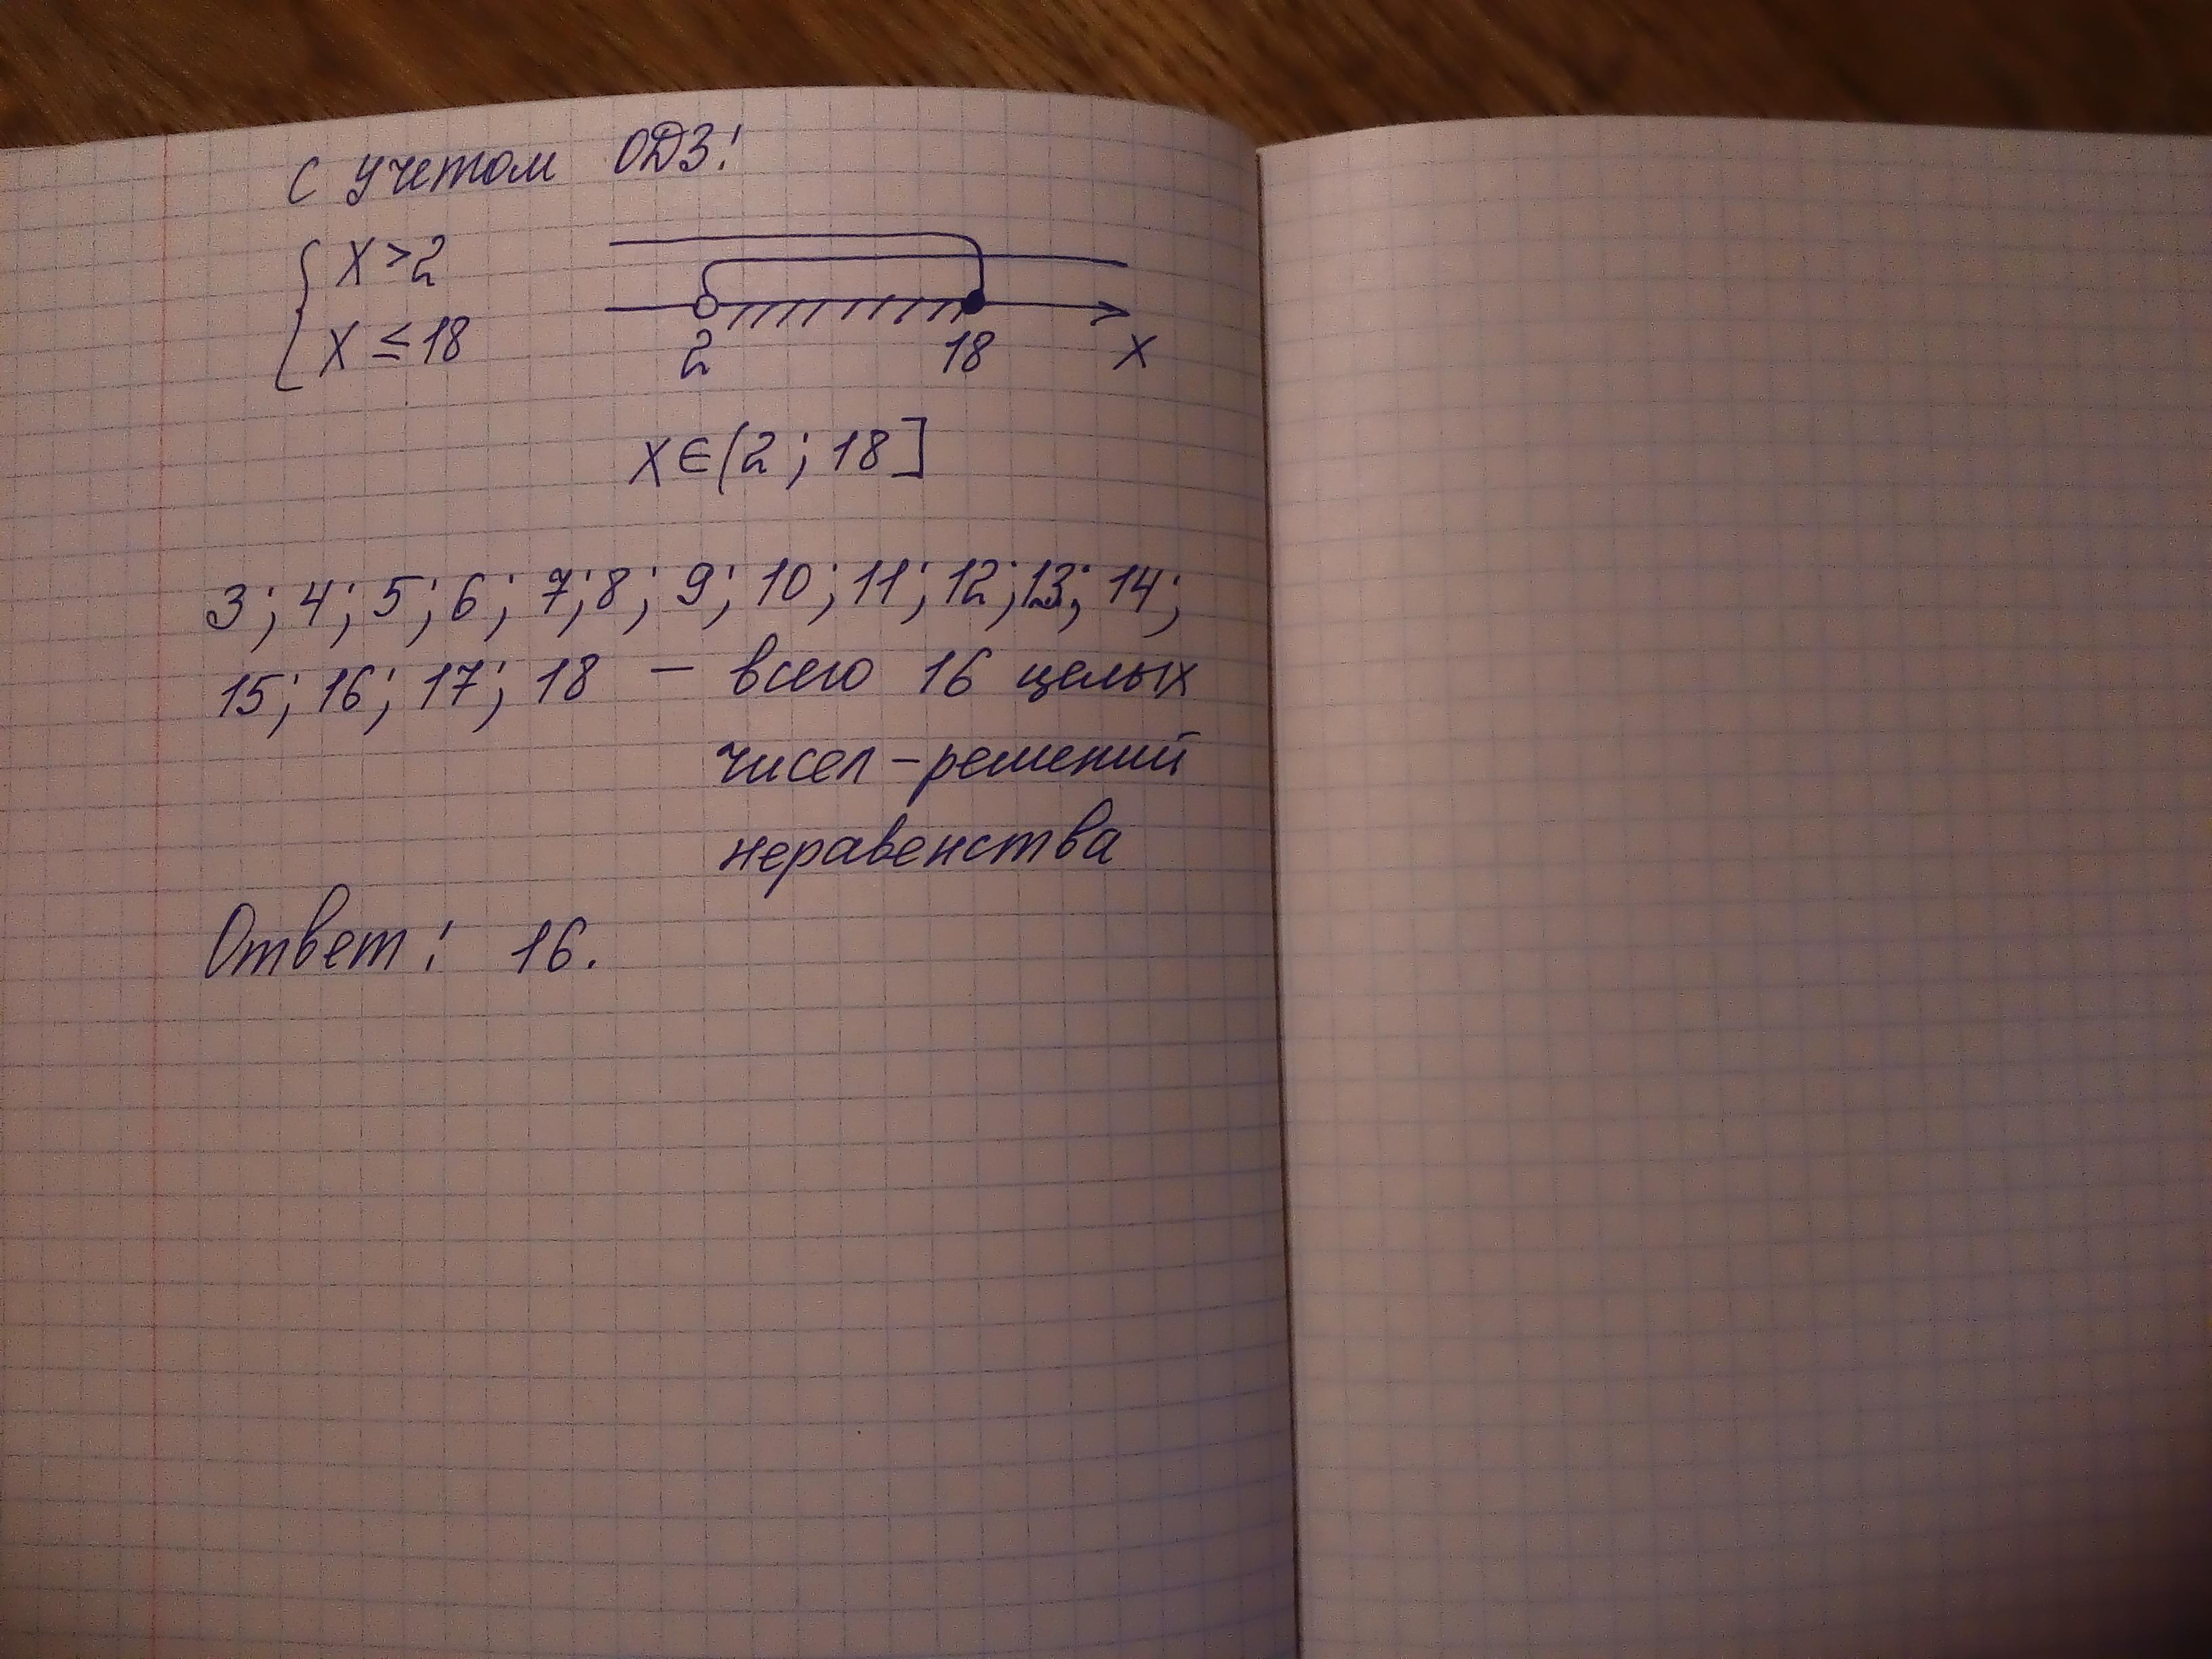 с учетом ОДЗ:
{ x > 2
x ≤ 18
2 18 x
x ∈ (2 ; 18]
3; 4; 5; 6; 7; 8; 9; 10; 11; 12; 13; 14;
15; 16; 17; 18 – всего 16 целых
чисел – решений
неравенства
Ответ: 16.